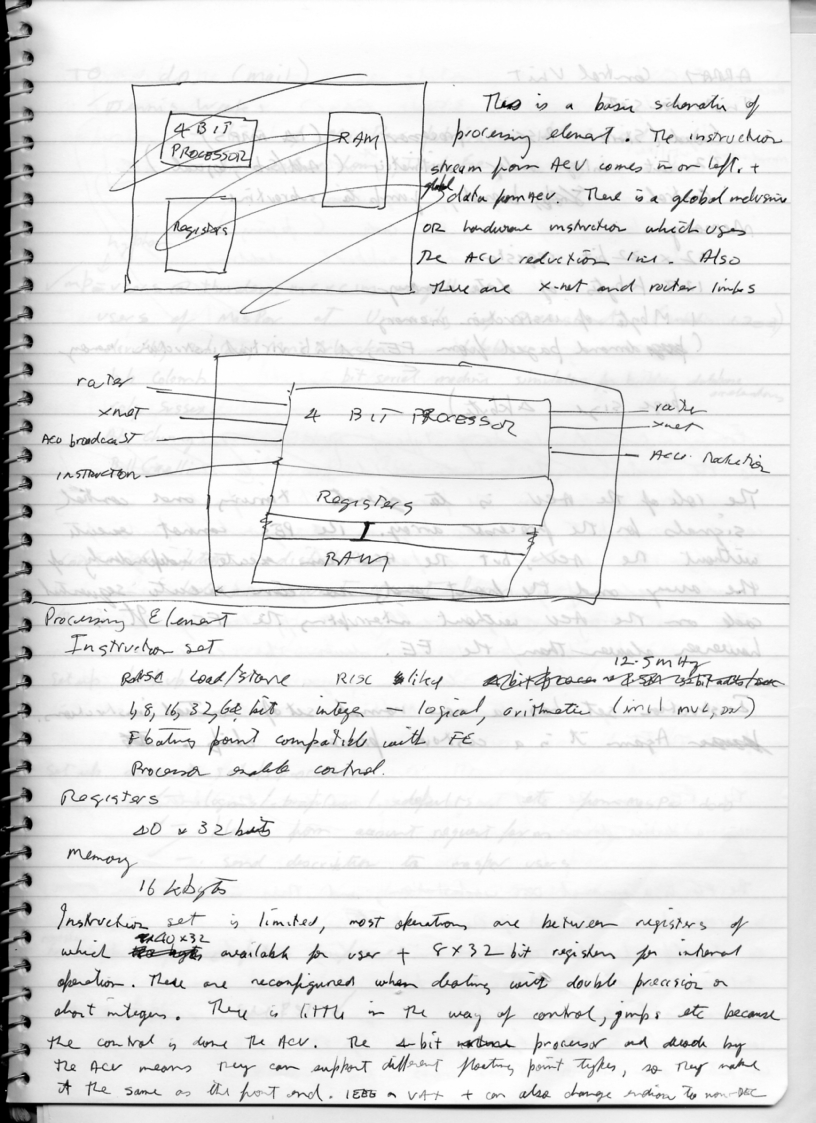 4 BIT
PROCESSOR
RAM
Registers
This is a basic schematic of
processing element. The instruction
stream from ACU comes in on left, +
global
data from ACU. There is a global inclusive
OR hardware instruction which uses
the ACU reduction line. Also
there are x-net and router links
router
xnet
ACU broadcast
INSTRUCTION
4 BIT PROCESSOR
Registers
RAM
router
xnet
ACU reduction
Processing Element
Instruction set
12.5 mHz
Load/store RISC liked
1, 8, 16, 32, 64 bit integer - logical, arithmetic (incl mul, div)
Floating point compatible with FE
Processor enable control.
Registers
40 x 32 bits
Memory
16 kbyts
Instruction set is limited, most operations are between registers of
40x32
which available for user + 8x32 bit registers for internal
operation. These are reconfigured when dealing with double precision or
short integers. There is little in the way of control, jmps etc because
the control is done the ACU. The 4-bit processor and decode by
the ACU means they can support different floating point types, so they make
it the same as the front end. IEEE or VAX + can also change endian to non-DEC